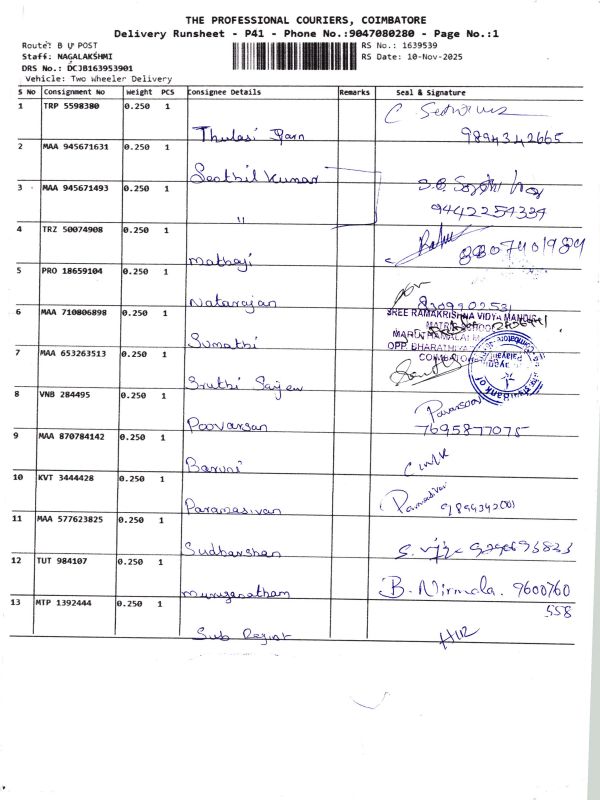 THE PROFESSIONAL COURIERS, COIMBATORE
Delivery Runsheet - P41 - Phone No.:9047080280 - Page No.:1
Route: B U POST
RS No.: 1639539
Staff: NAGALAKSHMI
RS Date: 10-Nov-2025
DRS No.: DCJB163953901
Vehicle: Two Wheeler Delivery
S No Consignment No Weight PCS Consignee Details Remarks Seal & Signature
1 TRP 5598380 0.250 1
Thulasi Ram 9894342665
2 MAA 945671631 0.250 1
Senthil Kumar
3 MAA 945671493 0.250 1
" 9442254334
4 TRZ 50074908 0.250 1
Mathaji Babu
5 PRO 18659104 0.250 1
Natarajan
6 MAA 710806898 0.250 1
SREE RAMAKRISHNA VIDYA MANDIR
Sumathi
7 MAA 653263513 0.250 1
OPP. BHARATHI
COIMBATORE
Sruthi Sajeev
8 VNB 284495 0.250 1
Poovarsan 7695877075
9 MAA 870784142 0.250 1
Barani
10 KVT 3444428 0.250 1
Paramasivan Paramasivan 9894342001
11 MAA 577623825 0.250 1
Sudharshan
12 TUT 984107 0.250 1
Muruganatham B. Nirmala. 9600760
558
13 MTP 1392444 0.250 1
Sub Regist